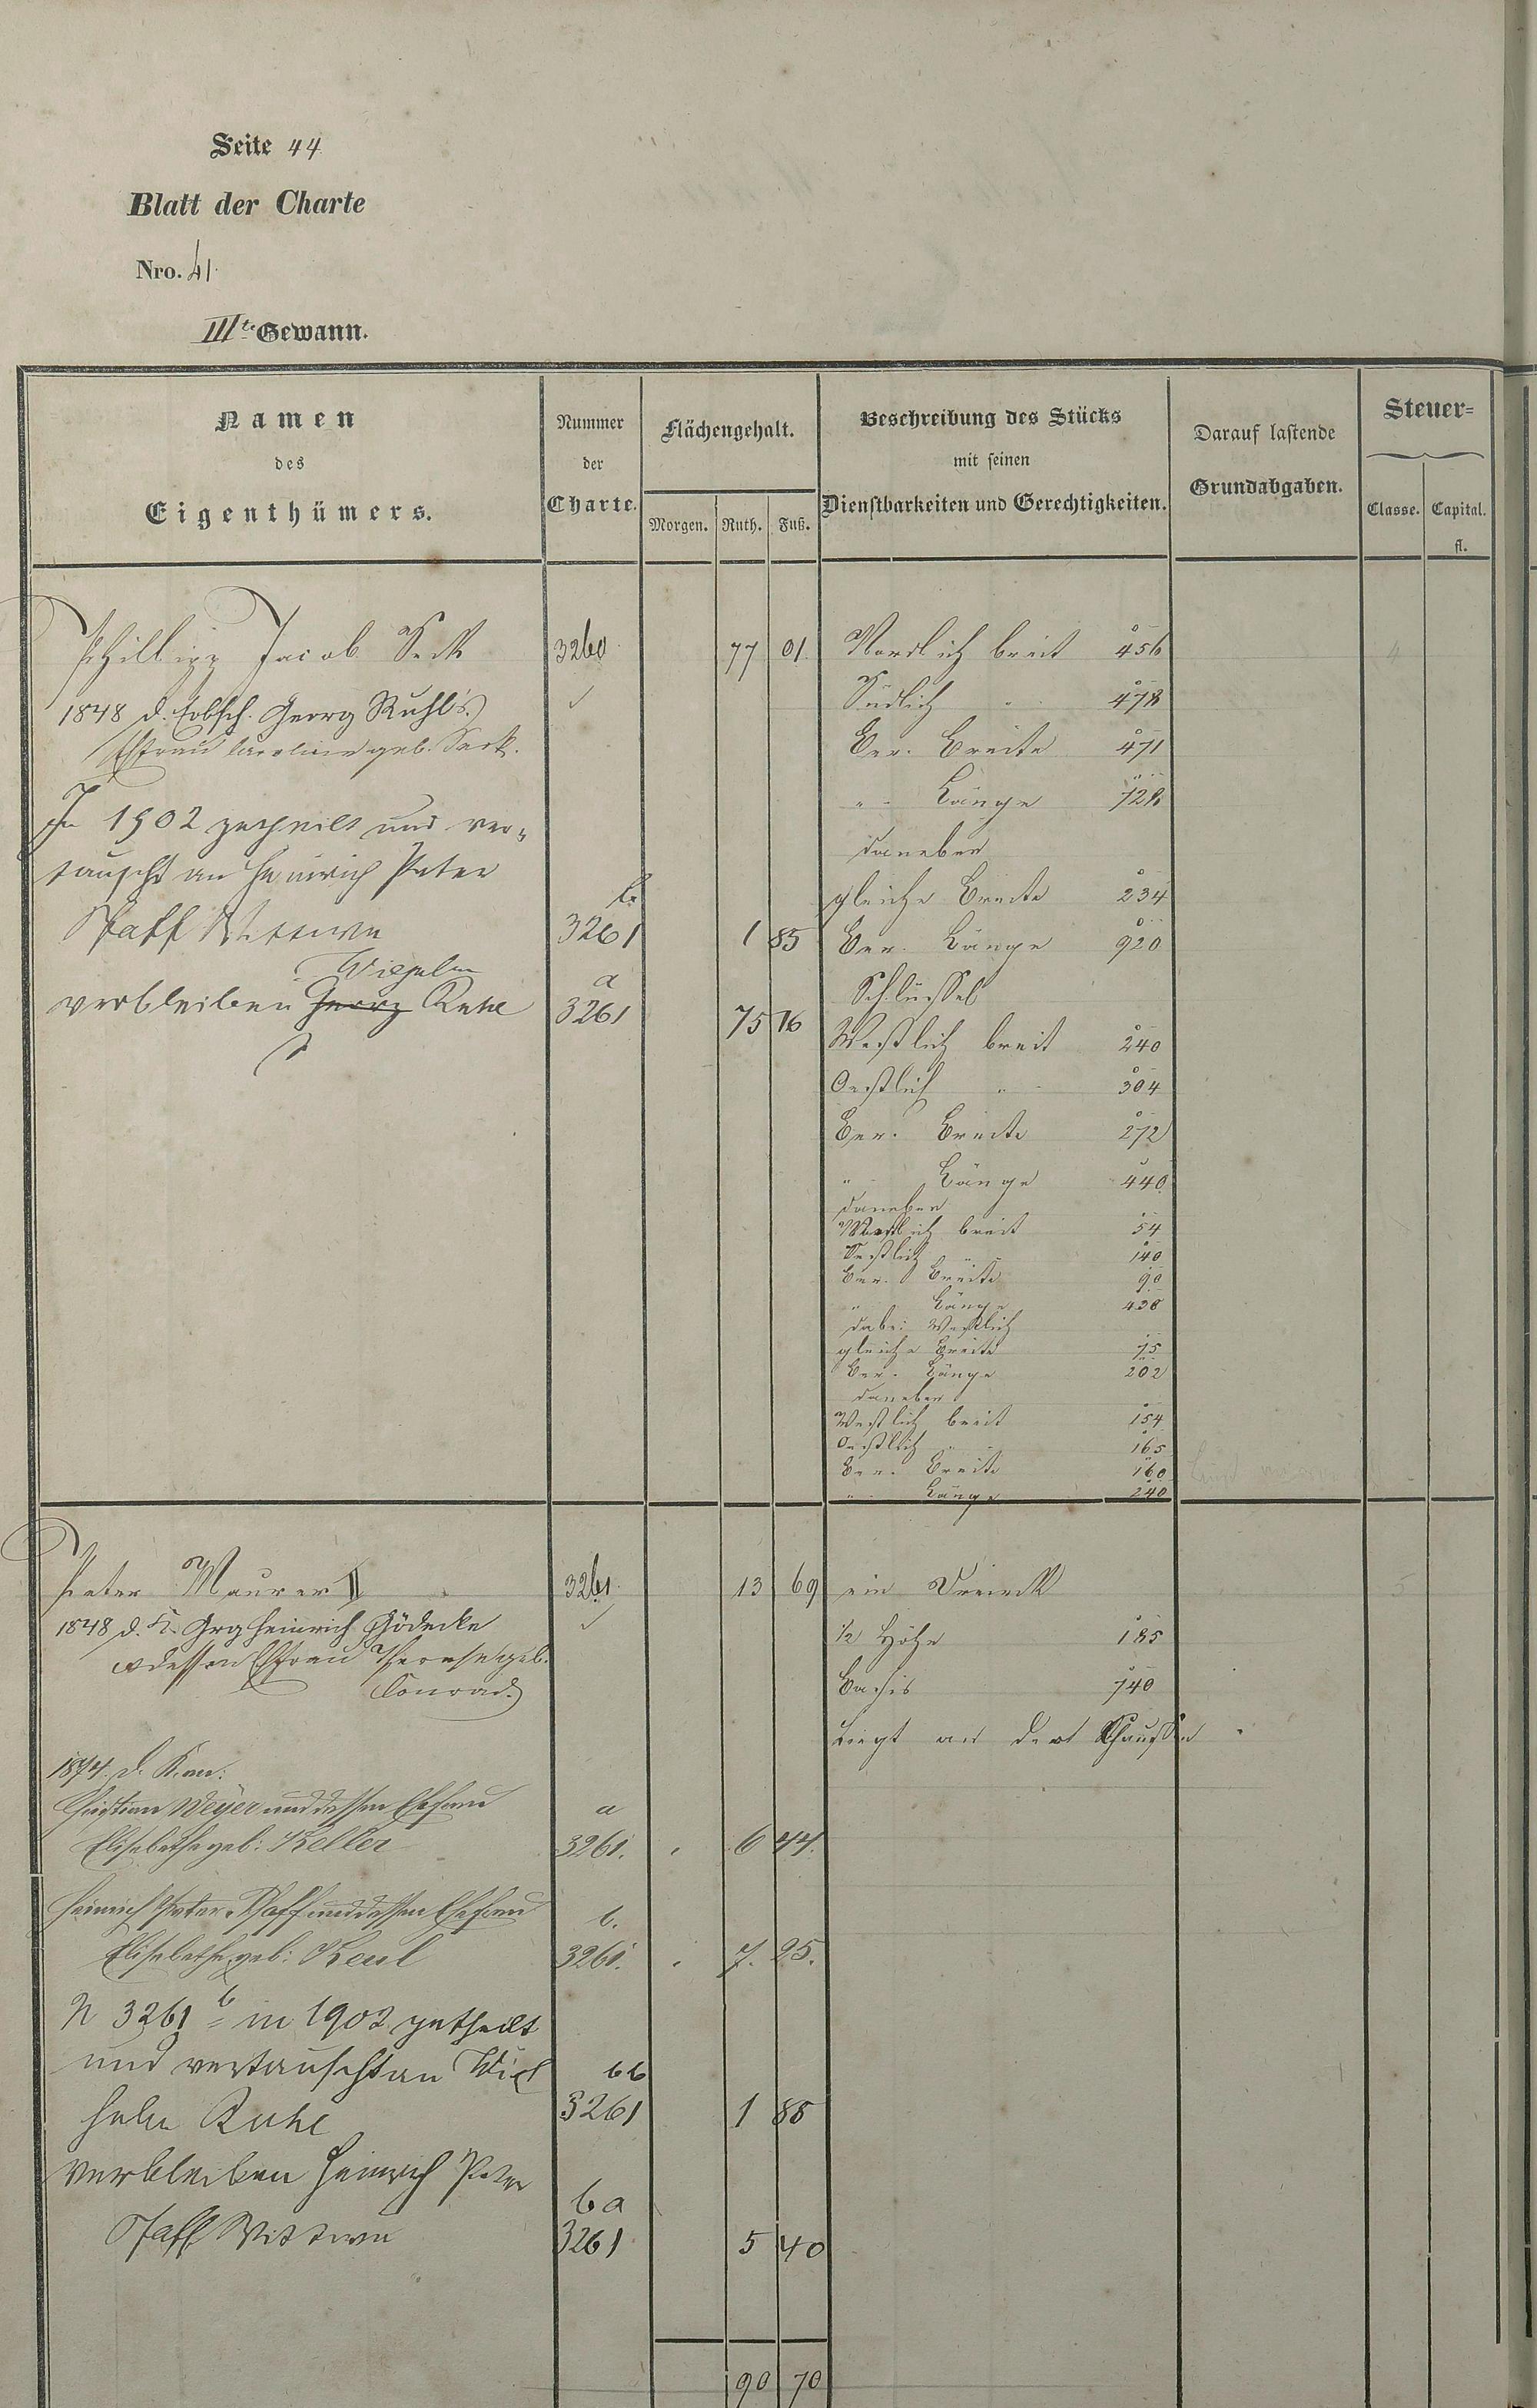 Seite 44
Blatt der Charte
Nro. 41.
IIIte Gewann.
Namen
des
Eigenthümers.
Nummer
der
Charte.
Flächengehalt.
Morgen. Ruth. Fuß.
Beschreibung des Stücks
mit seinen
Dienstbarkeiten und Gerechtigkeiten.
Darauf lastende
Grundabgaben.
Steuer-
Classe. Capital.
fl.
Philipp Jacob Seck 3260 77 01 Nordlich breit 456
1848 d. Erbsch. Georg Ruhl's Südlich " 478
Ehfrau Caroline geb. Seck. Ber. Breite 471
" Länge 728
In 1902 getheilt und ver-
daneben
tauscht an Heinrich Peter
b. gleiche Breite 234
Pfaff Wittwe 3261 1 85 Ber. Länge 920
Wilhelm a Schlüssel
verbleiben Georg Ruhl 3261 75 16
Westlich breit 240
Oestlich " 304
Ber. Breite 272
" Länge 440
daneben
Westlich breit 54
Oestlich " 140
Ber. Breite 90
" Länge 438
dabei Westlich
gleiche Breite 75
Ber. Länge 202
daneben
Westlich breit 154
Oestlich " 165
Ber. Breite 160
" Länge 240
Peter Maurer II 3261. 13 69 ein Dreieck
1848 d. K. Grg Heinrich Gödecke ½ Höhe 185
dessen Ehfrau geb.
Conrad. Basis 740
Liegt an der Chaussee
1874. d. Kau:
Christian Weyer und dessen Ehefrau a
Elisabethe geb: Keller 3261. 6 44.
Heinrich Peter Pfaff und dessen Ehefrau b.
Elisabethe geb: Keul 3261. 7. 25.
N 3261 b in 1902 getheilt
und vertauscht an Wil bb
helm Ruhl 3261 1 85
verbleiben Heinrich Peter
ba
Pfaff Wittwe 3261 5 40
90 70